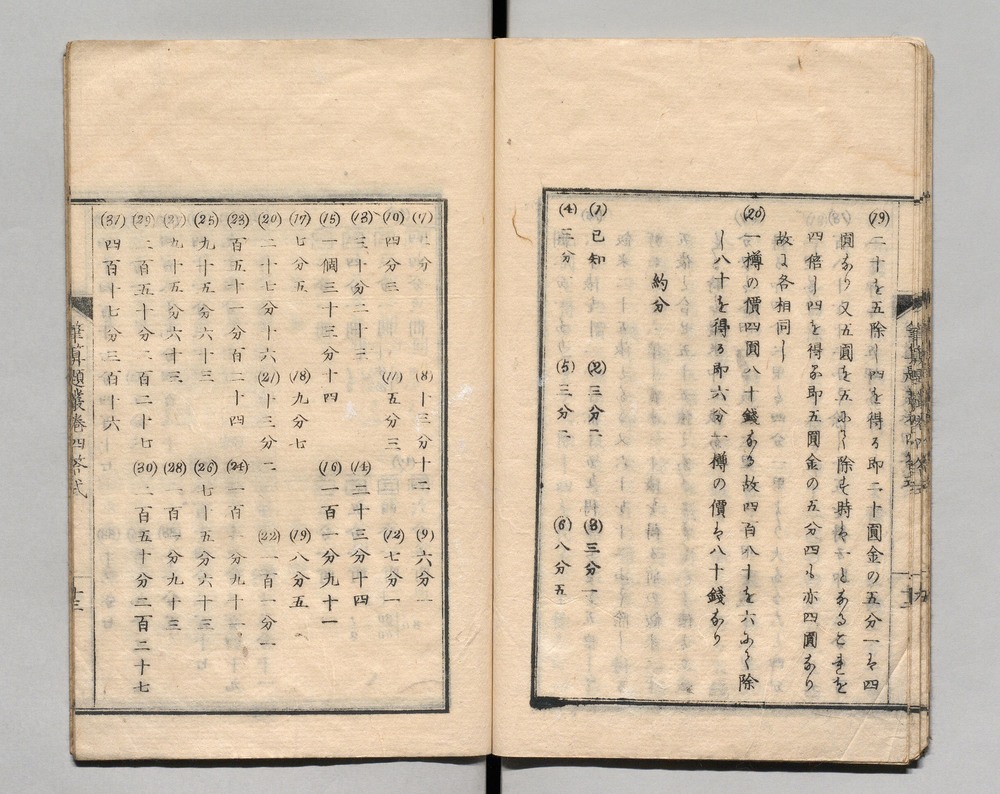 (19) 二十を五除し四を得る即二十圓金の五分一は四
圓なり又五圓を五にて除する時は一となるこれを
四倍し四を得る即五圓金の五分四も亦四圓なり
故に各相同し
(20) 一樽の價四圓八十錢なる故四百八十を六にて除
し八十を得る即六分一樽の價は八十錢なり
約分
(1) 已知 (2) 三分二 (3) 三分一
(4) 三分一 (5) 三分二 (6) 八分五
(7) 分 (8) 十三分十二 (9) 六分一
(10) 四分三 (11) 五分三 (12) 七分一
(13) 三十分二十三 (14) 二十三分十四
(15) 一個三十三分十四 (16) 一百一分九十一
(17) 七分五 (18) 九分七 (19) 八分五
(20) 二十七分十六 (21) 十三分二 (22) 一百一分一
(23) 百五十一分百二十四 (24) 一百一分九十一
(25) 九十五分六十三 (26) 七十五分六十三
(27) 九十五分六十三 (28) 一百一分九十三
(29) 二百五十分二百二十七 (30) 二百五十分二百二十七
(31) 四百十七分三百十六
筆算題叢卷四答式
十三